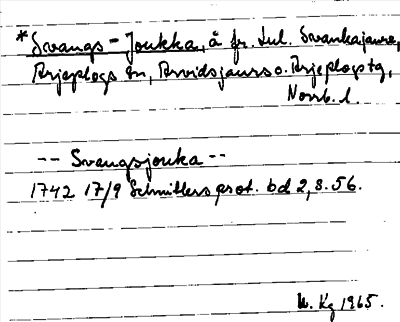 * Svangs-Joukka, å fr. Lul. Svankajaure,
Arjeplogs sn, Arvidsjaurs o. Arjeplogs tg,
Norrb. l.
-- Svangsjouka --
1742 17/9 Schnitlers prot. bd 2, s. 56.
M. Kg 1965.